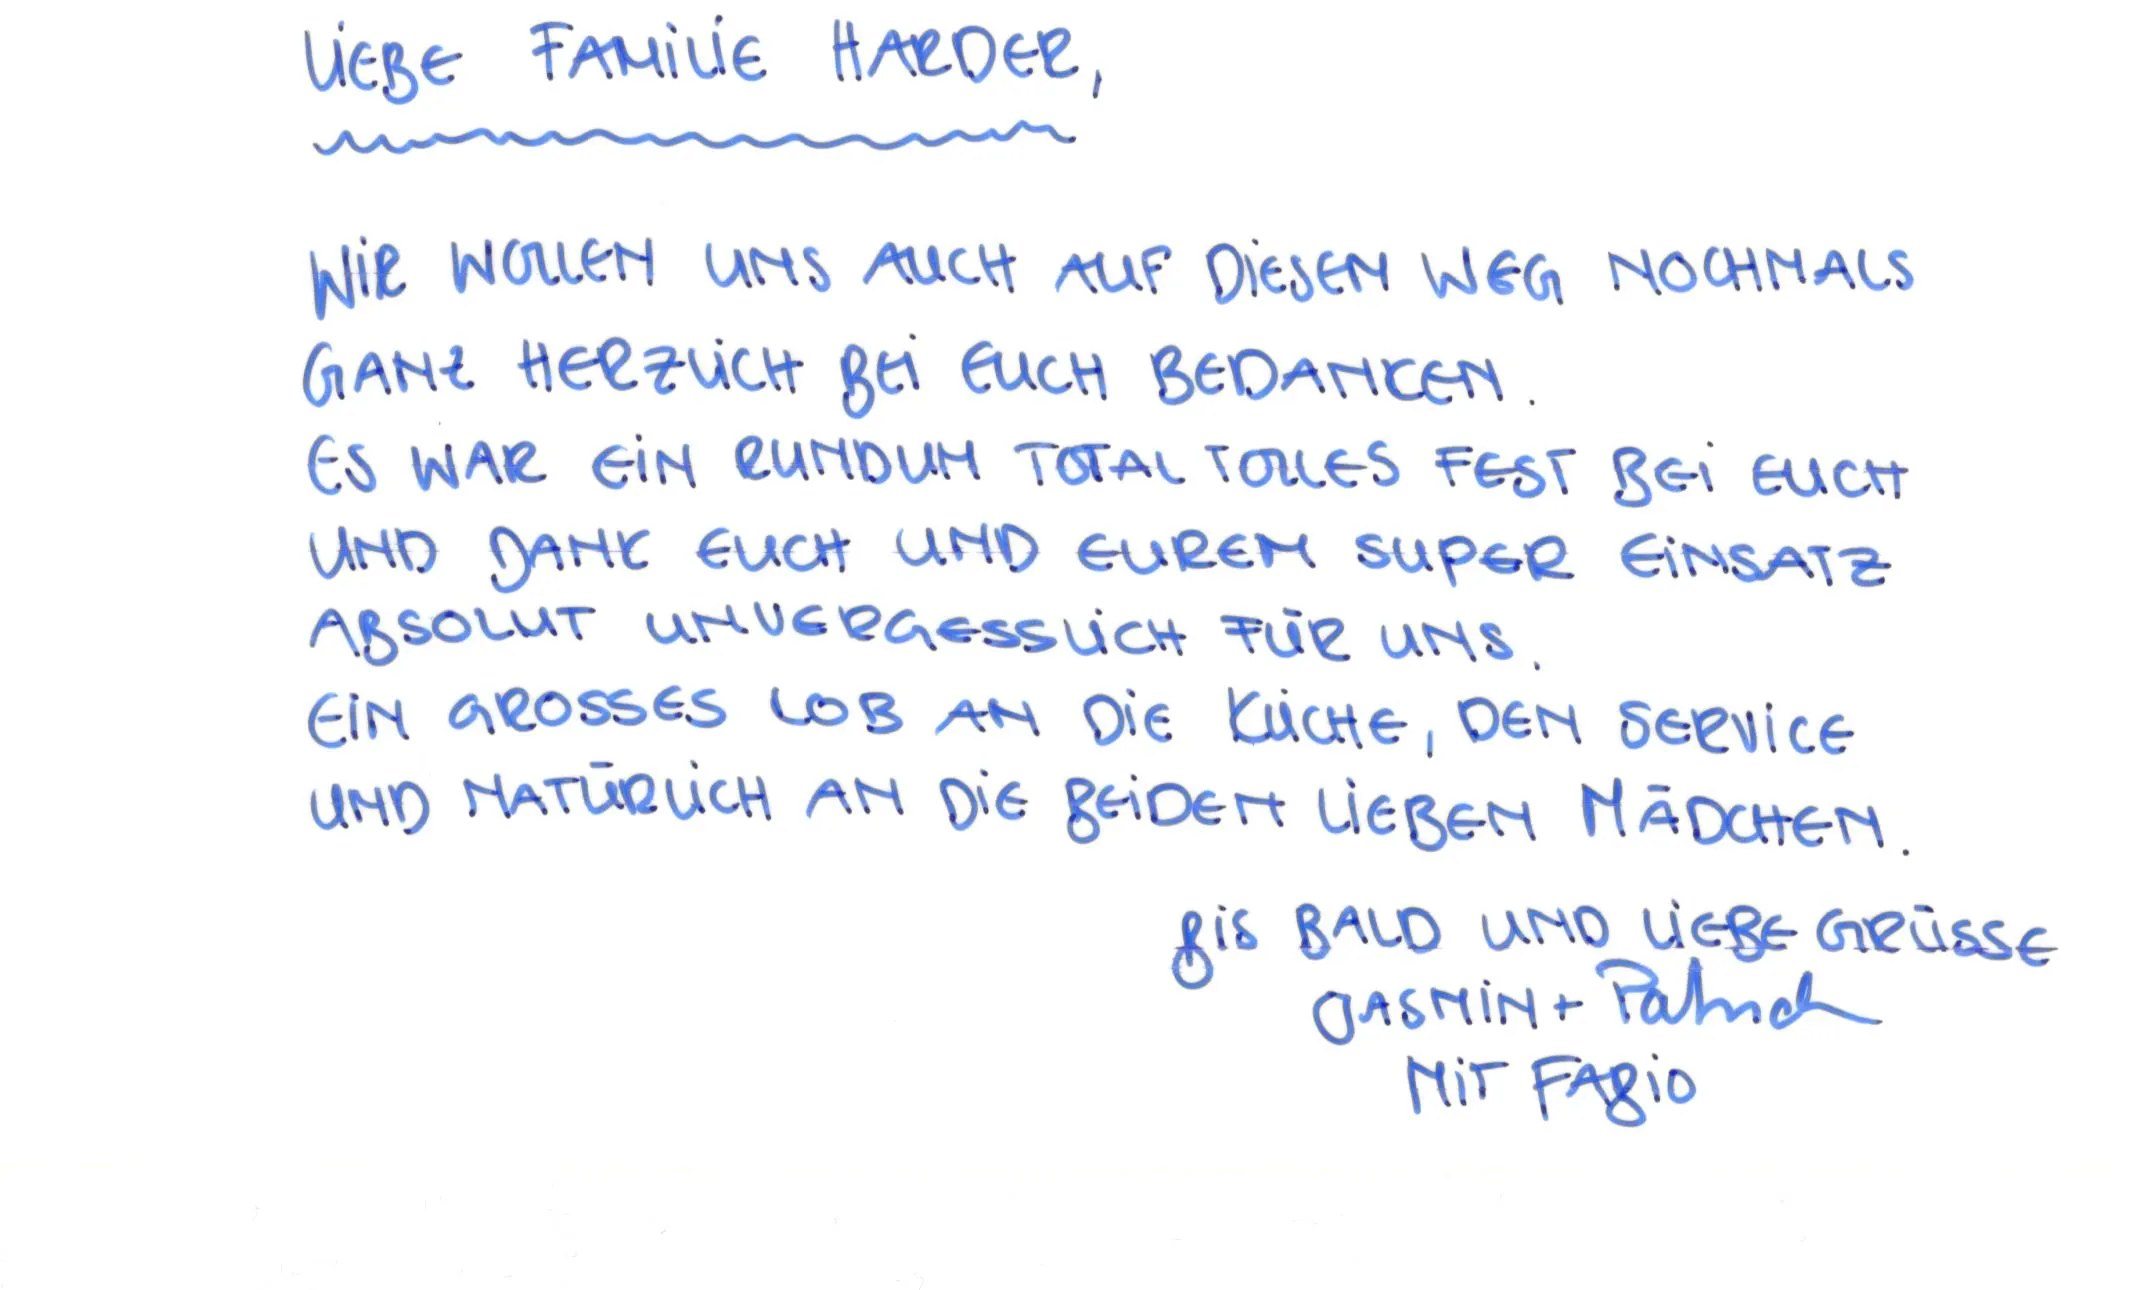 LIEBE FAMILIE HARDER,
WIR WOLLEN UNS AUCH AUF DIESEM WEG NOCHMALS
GANZ HERZLICH BEI EUCH BEDANKEN.
ES WAR EIN RUNDUM TOTAL TOLLES FEST BEI EUCH
UND DANK EUCH UND EUREM SUPER EINSATZ
ABSOLUT UNVERGESSLICH FÜR UNS.
EIN GROSSES LOB AN DIE KÜCHE, DEN SERVICE
UND NATÜRLICH AN DIE BEIDEN LIEBEN MÄDCHEN.
BIS BALD UND LIEBE GRÜSSE
JASMIN + Patrick
MIT FABIO